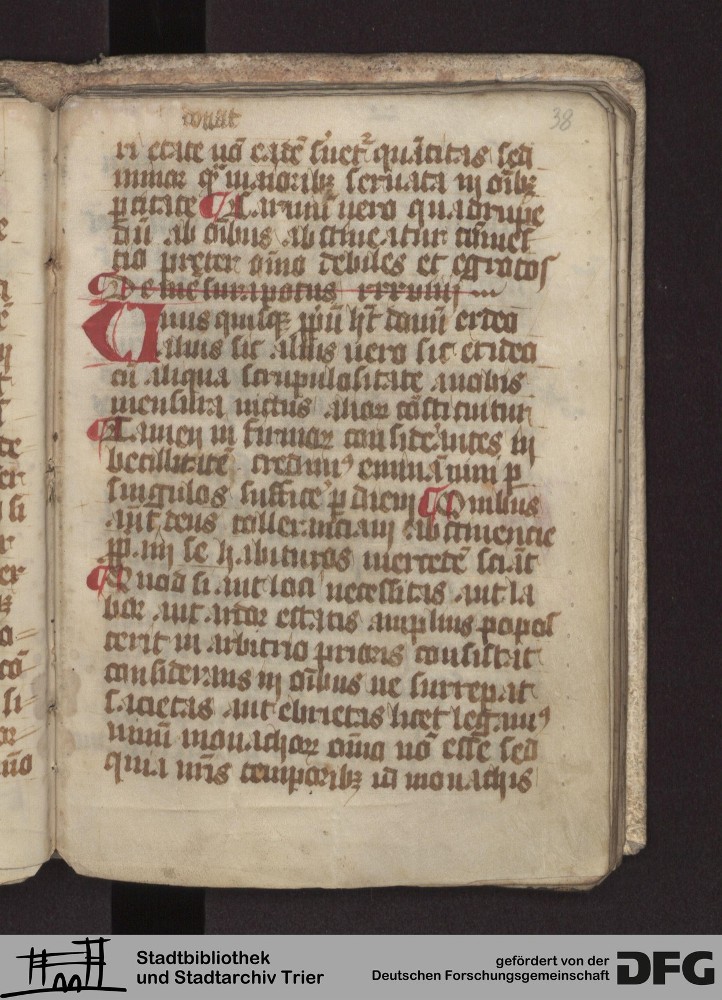 38
ri etate nõ eadẽ suetʳ quãtitas sed
minor qᷓ maioribꝫ seruata in oĩbꝫ
ꝑcitate Carniũ uero quadrupe
dũ ab oĩbus abstineatur comes
tio preter oĩno debiles et egrotos
De mesura potus xxxviiij
Unus quisqꝫ ꝓpiũ hꝫt donũ ex deo
alius sic alius uero sic et ideo
cũ aliqua scrupulositate a nobis
mensura uictus alior cõstituitur
Tamen in firmor considerantes in
becillitatẽ credimꝰ eminã uini ꝑ
singulos sufficeʳ ꝑ diem Quibus
aũt deus tollerantiam abstinentie
ꝓpiam se habituros mercedẽ sciãt
Quod si aut loci necessitas aut la
bor aut ardor estatis amplius popos
cerit in arbitrio prioris consistat
considerans in oĩbus ne surrepat
sacietas aut ebrietas licet legamꝰ
uinũ monachor oĩno nõ esse sed
quia nr̃is temporibꝫ id monachis
Stadtbibliothek
und Stadtarchiv Trier
gefördert von der
Deutschen Forschungsgemeinschaft
DFG